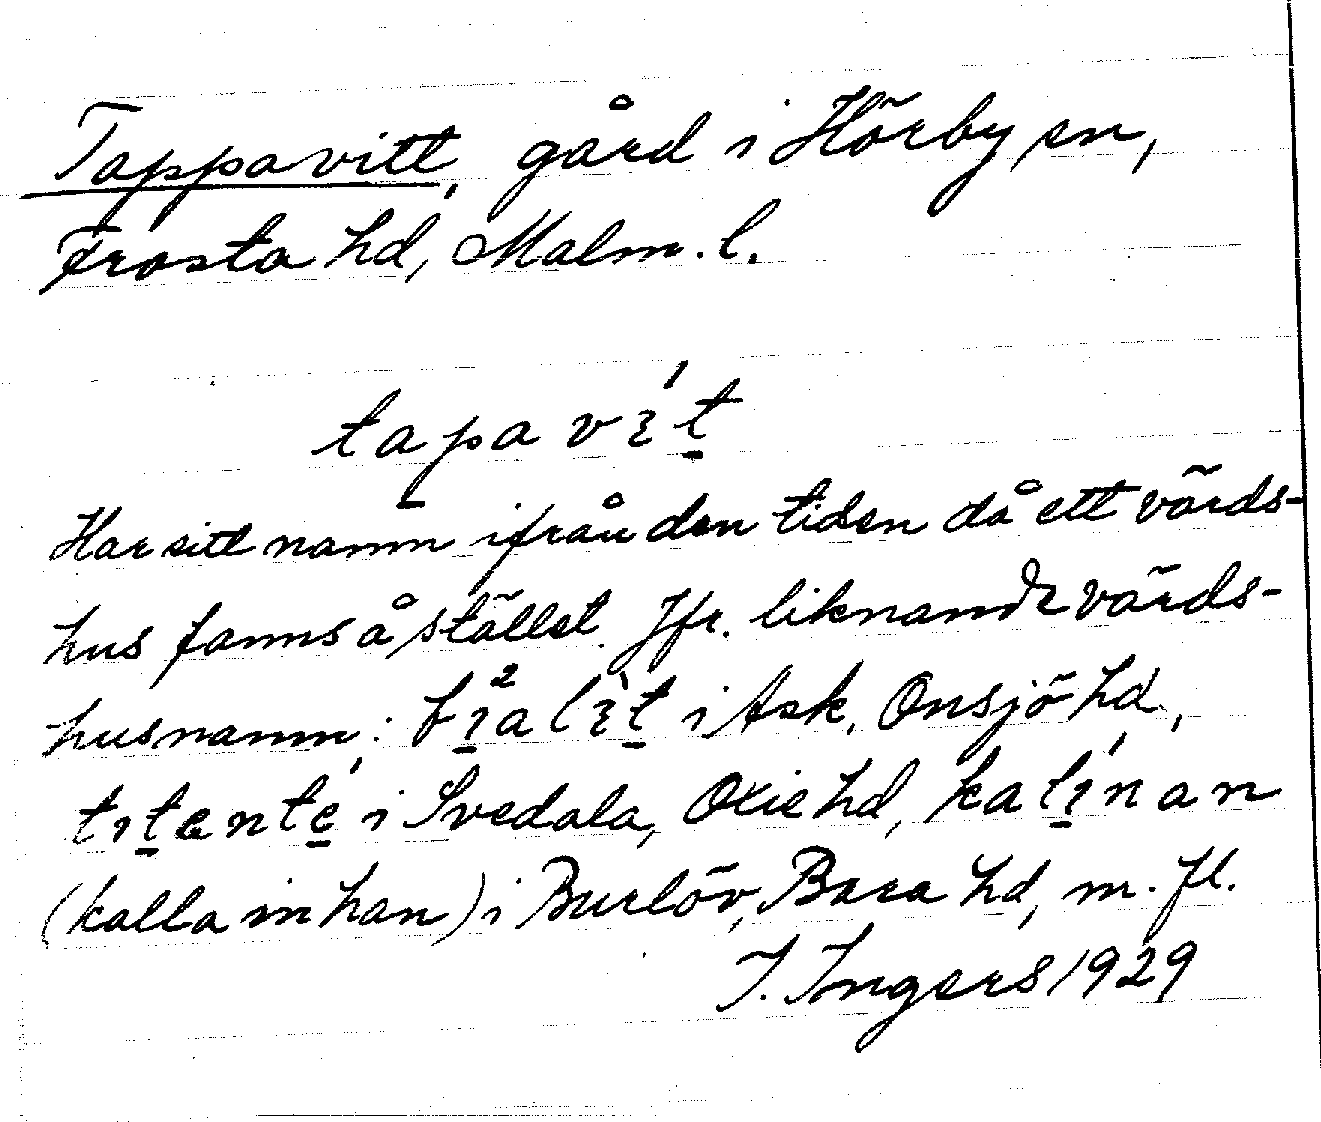 Tappavitt, gård i Hörby sn,
Frosta hd, Malm. l.
tapavít
Har sitt namn ifrån den tiden då ett värds-
hus fanns å stället. Jfr. liknande värds-
husnamn: i Ask, Onsjö hd,
titenté i Svedala, Oxie hd, kalínan
(kalla in han) i Burlöv, Bara hd, m. fl.
I. Ingers 1929